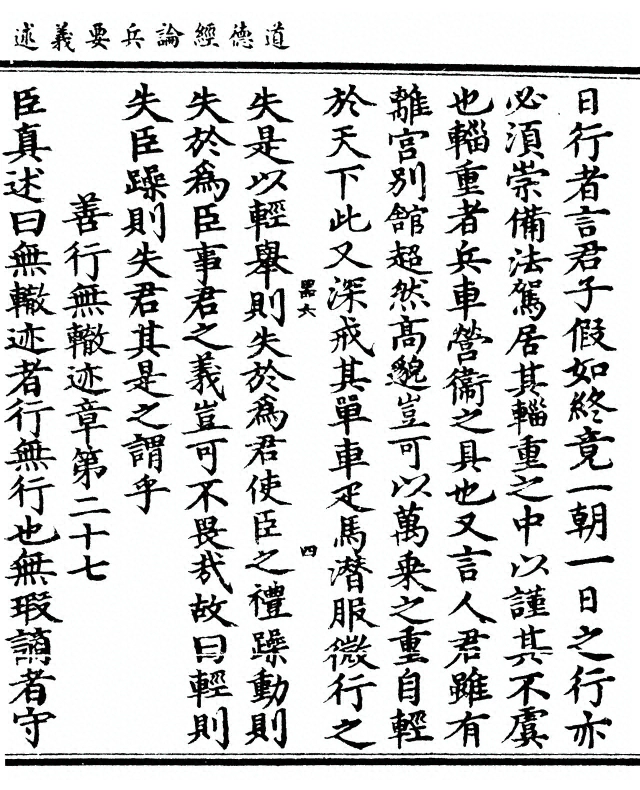 道德經論兵要義述
日行者言君子假如終竟一朝一日之行亦
必須崇備法駕居其輜重之中以謹其不虞
也輜重者兵車營衞之具也又言人君雖有
離宮別館超然高邈豈可以萬乗之重自輕
於天下此又深戒其單車疋馬潛服微行之
失是以輕舉則失於爲君使臣之禮躁動則
失於爲臣事君之義豈可不畏哉故曰輕則
失臣躁則失君其是之謂乎
善行無轍迹章第二十七
臣真述曰無轍迹者行無行也無瑕讁者守
四